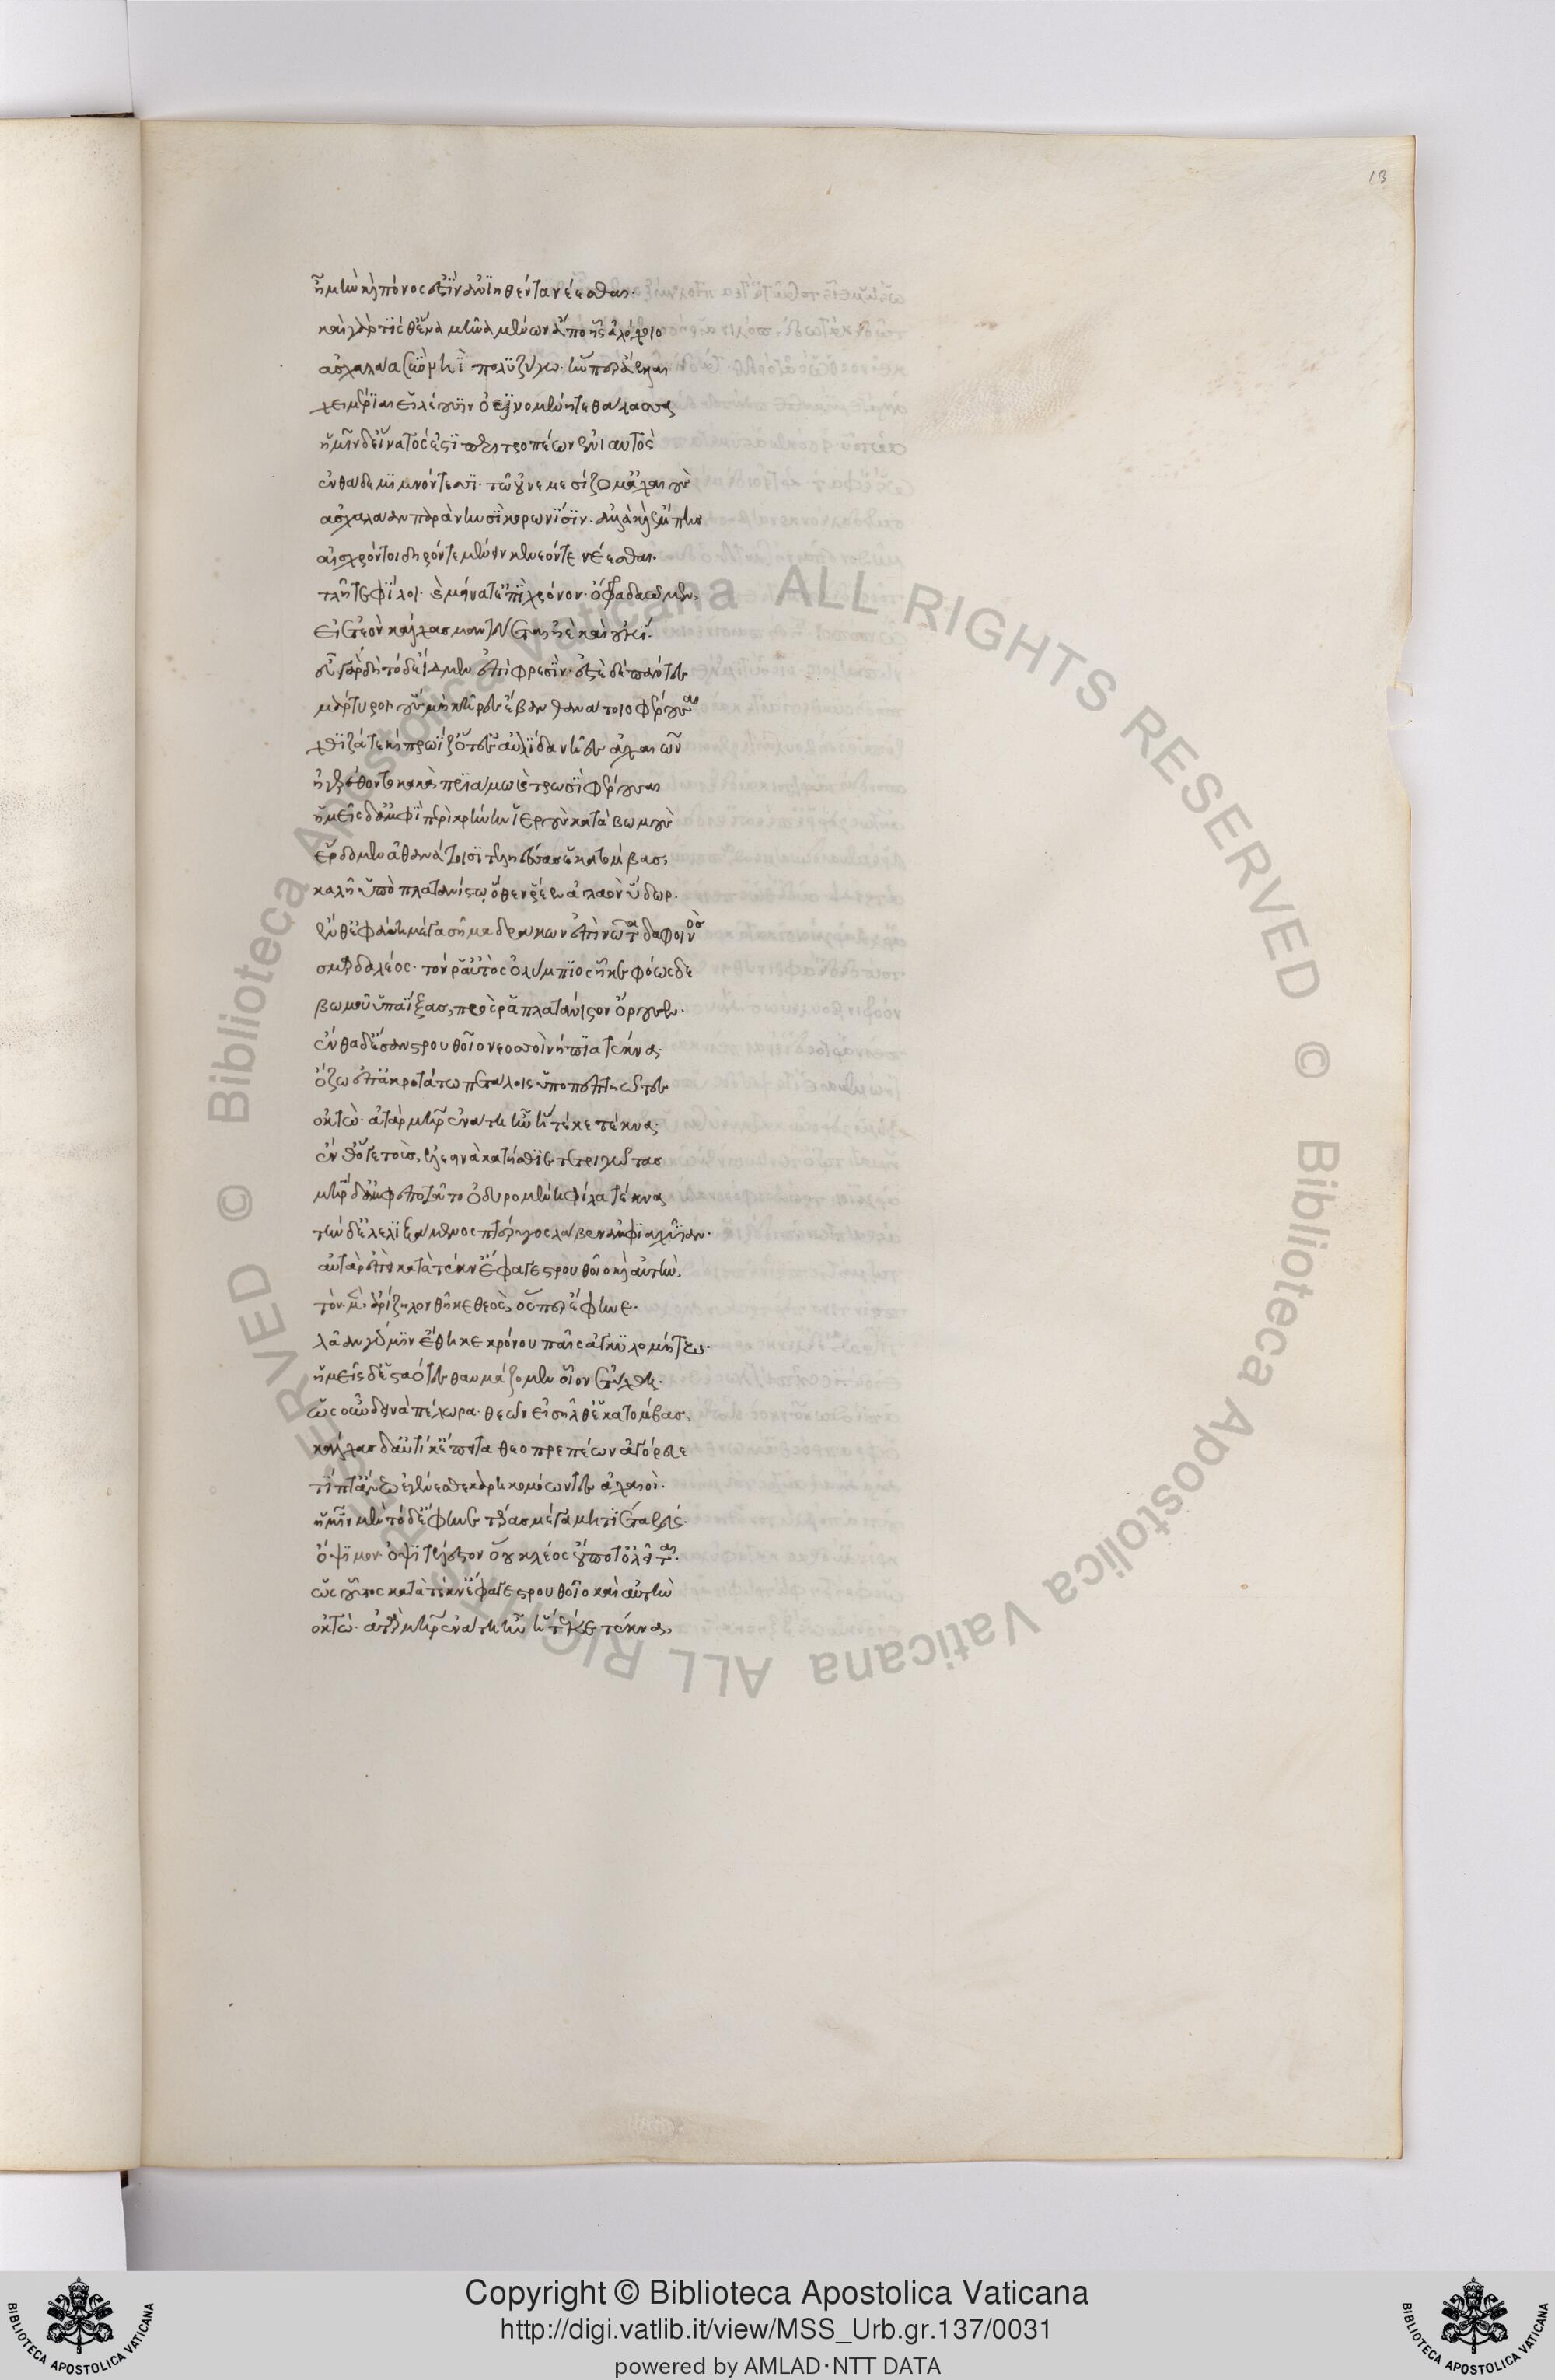 13
ἦ μὴν καὶ πόνος ἐστὶν ἀνιηθέντα νέεσθαι·
καὶ γάρ τίς θ' ἕνα μῆνα μένων ἀπὸ ἧς ἀλόχοιο
ἀσχαλάα σὺν νηῒ πολυζύγω· ἥν περ ἄελλαι
χειμέριαι εἰλέωσιν ὀρινομένη τε θάλασσα
ἡμῖν δ' εἴνατός ἐστι περιτροπέων ἐνιαυτὸς
ἐνθάδε μιμνόντεσσι· τῶ οὐ νεμεσίζομ' ἀχαιοὺς
ἀσχαλάαν παρὰ νηυσὶ κορωνίσιν· ἀλλὰ καὶ ἔμπης
αἰσχρόν τοι δηρόν τε μένειν κενεόν τε νέεσθαι.
τλῆτε φίλοι· καὶ μείνατ' ἐπὶ χρόνον· ὄφρα δαῶμεν,
εἰ ἐτεὸν κάλχας μαντεύεται ἠὲ καὶ οὐκί.
εὖ γὰρ δὴ τόδε ἴδμεν ἐνὶ φρεσὶν· ἐστὲ δὲ πάντες
μάρτυροι οὓς μὴ κῆρες ἔβαν θανάτοιο φέρουσαι
χθιζά τε καὶ πρωΐζ' ὅτ' ἐς αὐλίδα νῆες ἀχαιῶν
ἠγερέθοντο κακὰ πριάμω καὶ τρωσὶ φέρουσαι
ἡμεῖς δ' ἀμφὶ περὶ κρήνην ἱεροὺς κατὰ βωμοὺς
ἔρδομεν ἀθανάτοισι τεληέσσας ἑκατόμβας,
καλῆ ὑπὸ πλατανίστω, ὅθεν ῥέεν ἀγλαὸν ὕδωρ.
ἔνθ' ἐφάνη μέγα σῆμα δράκων ἐπὶ νῶτα δαφοινὸς
σμερδαλέος· τόν ῥ' αὐτὸς ὀλύμπιος ἧκε φόωσδε
βωμοῦ ὑπαΐξας, πρός ῥα πλατάνιστον ὄρουσεν.
ἔνθα δ' ἔσαν στρουθοῖο νεοσσοὶ νήπια τέκνα,
ὄζω ἐπ' ἀκροτάτω πετάλοις ὑποπεπτηῶτες
ὀκτὼ· ἀτὰρ μήτηρ ἐνάτη ἦν ἣ τέκε τέκνα·
ἔνθ' ὅγε τοὺς ἐλεεινὰ κατήσθιε τετριγῶτας
μήτηρ δ' ἀμφεποτᾶτο ὀδυρομένη φίλα τέκνα
τὴν δ' ἐλελιξάμενος πτέρυγος λάβεν ἀμφιαχυῖαν·
αὐτὰρ ἐπεὶ κατὰ τέκν' ἔφαγε στρουθοῖο καὶ αὐτὴν,
τὸν μὲν ἀρίζηλον θῆκε θεὸς, ὅσπερ ἔφηνε.
λᾶαν γάρ μιν ἔθηκε κρόνου παῖς ἀγκυλομήτεω.
ἡμεῖς δ' ἑσταότες θαυμάζομεν οἷον ἐτύχθη.
ὡς οὖν δεινὰ πέλωρα θεῶν εἰσῆλθ' ἑκατόμβας,
κάλχας δ' αὐτίκ' ἔπειτα θεοπροπέων ἀγόρευε
τίπτ' ἄνεω ἐγένεσθε καρηκομόωντες ἀχαιοὶ.
ἡμῖν μὲν τόδ' ἔφηνε τέρας μέγα μητίετα ζεὺς.
ὄψιμον· ὀψιτέλεστον ὅου κλέος οὔποτ' ὀλεῖται.
ὡς οὗτος κατὰ τέκν' ἔφαγε στρουθοῖο καὶ αὐτὴν
ὀκτὼ· ἀτὰρ μήτηρ ἐνάτη ἦν ἣ τέκε τέκνα,
© Biblioteca Apostolica Vaticana ALL RIGHTS RESERVED © Biblioteca Apostolica Vaticana ALL RIGHTS RESERVED
BIBLIOTECA APOSTOLICA VATICANA
Copyright © Biblioteca Apostolica Vaticana
http://digi.vatlib.it/view/MSS_Urb.gr.137/0031
powered by AMLAD·NTT DATA
BIBLIOTECA APOSTOLICA VATICANA